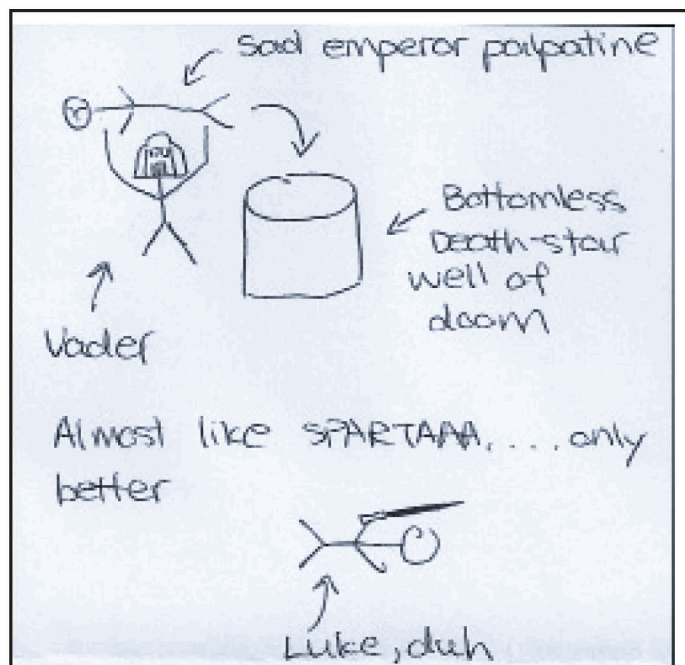 Sad emperor palpatine
Bottomless
Death-star
well of
doom
Vader
Almost like SPARTAAA,....only
better
Luke, duh